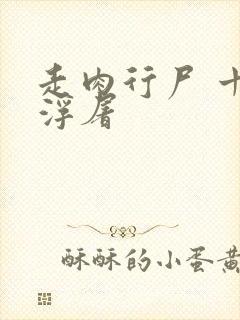 走肉行尸 十
浮屠
酥酥的小蛋黄